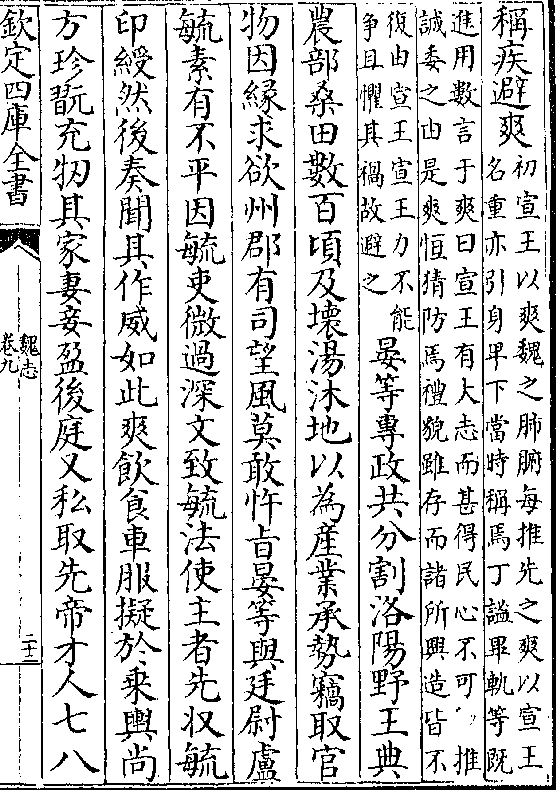 稱疾避爽
初宣王以爽魏之肺腑每推先之爽以宣王
名重亦引身卑下當時稱焉丁謐畢軌等既
進用數言于爽曰宣王有大志而甚得民心不可推
誠委之由是爽恒猜防焉禮貌雖存而諸所興造皆不
復由宣王宣王力不能
爭且懼其禍故避之
晏等專政共分割洛陽野王典
農部桑田數百頃及壞湯沐地以為産業承勢竊取官
物因緣求欲州郡有司望風莫敢忤旨晏等與廷尉盧
毓素有不平因毓吏微過深文致毓法使主者先収毓
印綬然後奏聞其作威如此爽飲食車服擬於乗輿尚
方珍翫充牣其家妻妾盈後庭又私取先帝才人七八
欽定四庫全書
魏志
卷九